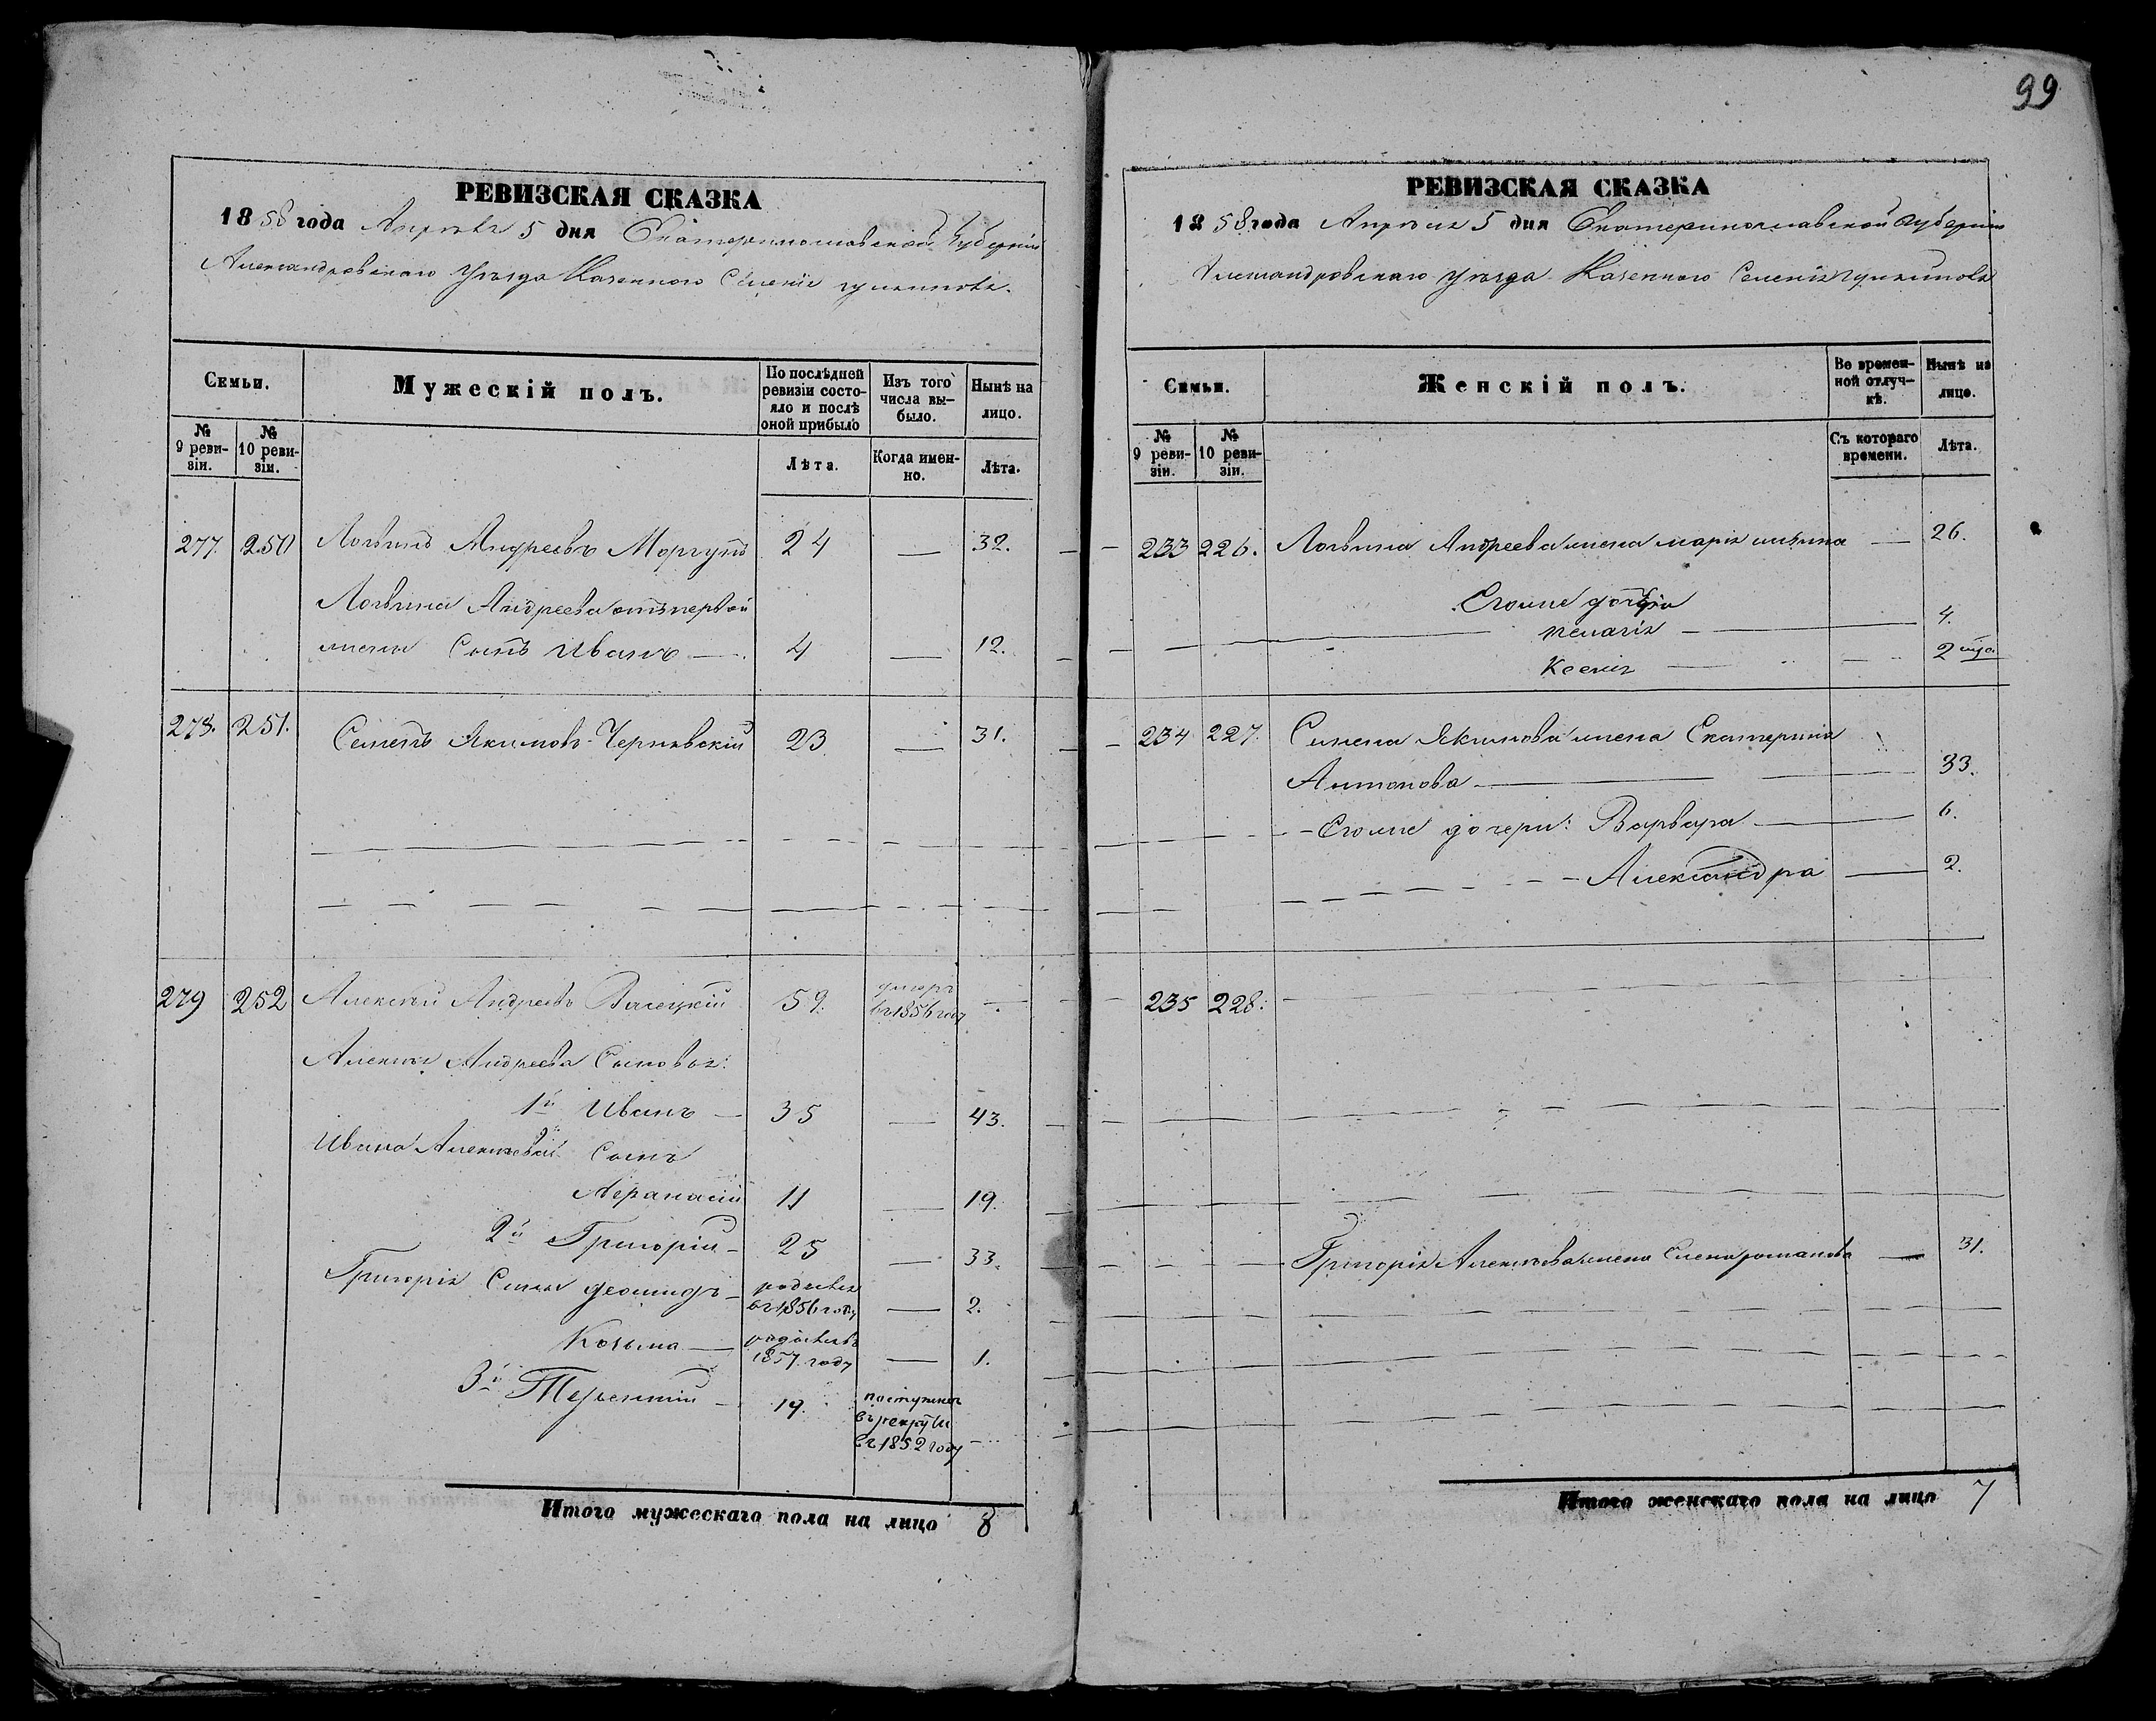 99
РЕВИЗСКАЯ СКАЗКА
1858 года Апрѣля 5 дня Екатеринославской Губерніи
Александровскаго Уѣзда Казеннаго Селенія
Семьи.
Мужескій полъ.
По послѣдней ревизіи состояло и послѣ оной прибыло
Изъ того числа выбыло.
Нынѣ на лицо.
№ 9 ревизіи.
№ 10 ревизіи.
Лѣта.
Когда именно.
Лѣта.
277. 250 Логвинъ Андреевъ Моргунъ 24 — 32.
Логвина Андреева отъ первой
жены Сынъ Иванъ — 4 — 12.
278. 251. Семенъ Якимовъ Чернявскій 23 — 31.
279 252 Алексѣй Андреевъ 59. умеръ въ 1856 году —
Алексѣя Андреева Сыновья:
1й Иванъ — 35 — 43.
Ивана Алексѣева Сынъ
Афанасій 11 — 19.
2й Григорій — 25 — 33.
Григорія Сыны — родился въ 1856 году — 2.
Козьма — родился въ 1857. году — 1.
3й Терентій — 19. поступилъ въ рекруты въ 1852 году —
Итого мужескаго пола на лицо 8
РЕВИЗСКАЯ СКАЗКА
1858 года Апрѣля 5 дня Екатеринославской Губерніи
Александровскаго Уѣзда Казеннаго Селенія
Семьи.
Женскій полъ.
Во временной отлучкѣ.
Нынѣ на лицо.
№ 9 ревизіи.
№ 10 ревизіи.
Съ котораго времени.
Лѣта.
233 226. Логвина Андреева жена Марія — 26.
Его же дочери
Пелагія — 4.
Ксенія — 2
234 227. Семена Якимова жена Екатерина
Антонова — 33.
Его же дочери: Варвара — 6.
Александра — 2.
235 228.
Григорія Алексѣева жена Елена Романова — 31.
Итого женскаго пола на лицо 7